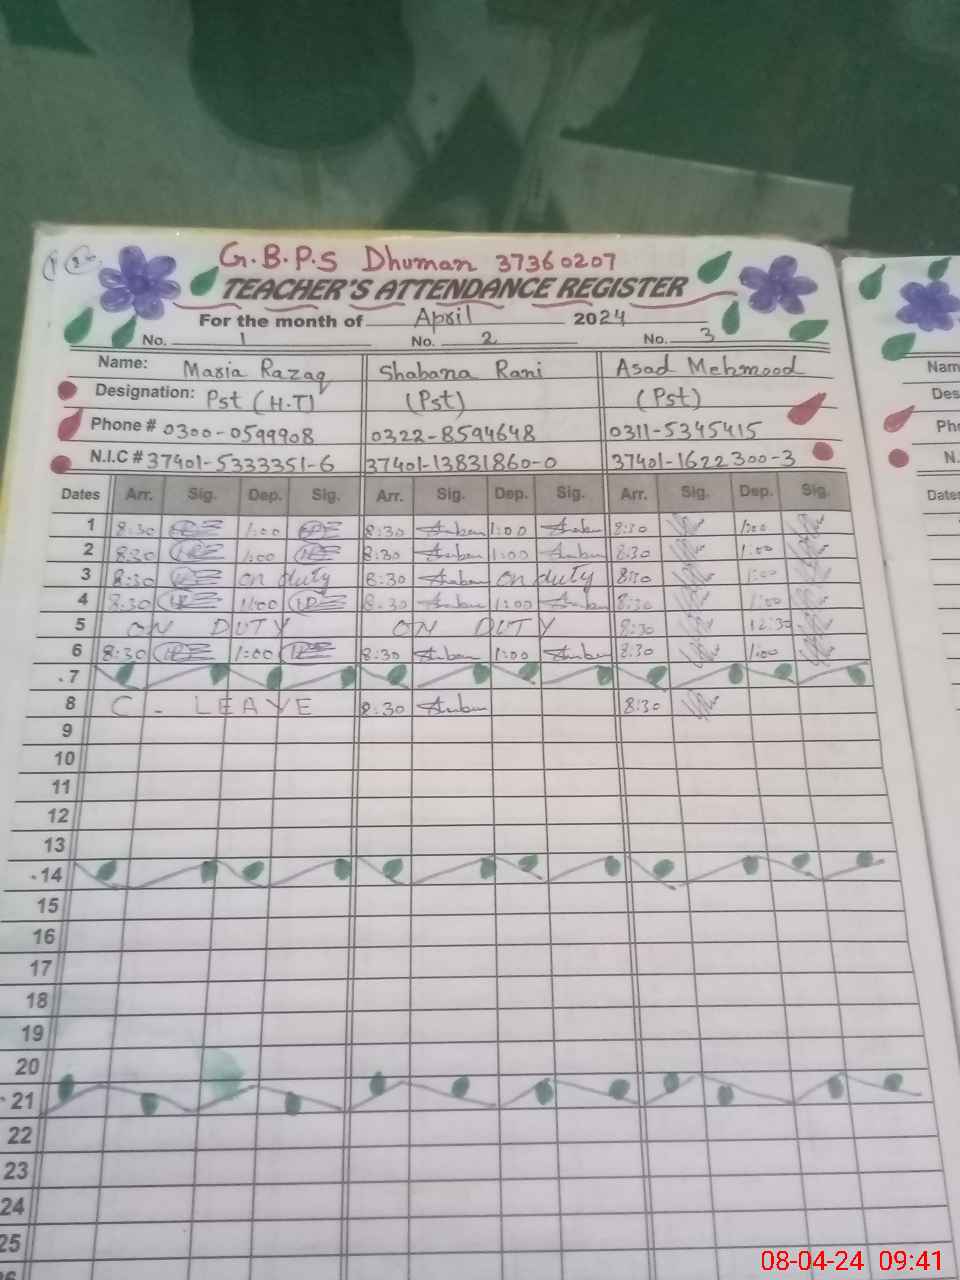 G.B.P.S Dhuman 37360207
TEACHER'S ATTENDANCE REGISTER
For the month of April 2024
No. 1 No. 2 No. 3
Name: Maria Razaq Shabana Rani Asad Mehmood
Designation: Pst (H.T) (Pst) (Pst)
Phone # 0300-0599908 0322-8594648 0311-5345415
N.I.C # 37401-5333351-6 37401-13831860-0 37401-1622300-3
Dates Arr. Sig. Dep. Sig. Arr. Sig. Dep. Sig. Arr. Sig. Dep. Sig.
1 8:30 1:00 8:30 1:00 8:30 1:00
2 8:30 1:00 8:30 1:00 8:30 1:00
3 8:30 on duty 8:30 on duty 8:30 1:00
4 8:30 1:00 8:30 1:00 8:30 1:00
5 ON DUTY ON DUTY 8:30 12:30
6 8:30 1:00 8:30 1:00 8:30 1:00
7
8 C - LEAVE 8:30 8:30
9
10
11
12
13
14
15
16
17
18
19
20
21
22
23
24
25
Nam
Des
Ph
N.
Date
08-04-24 09:41